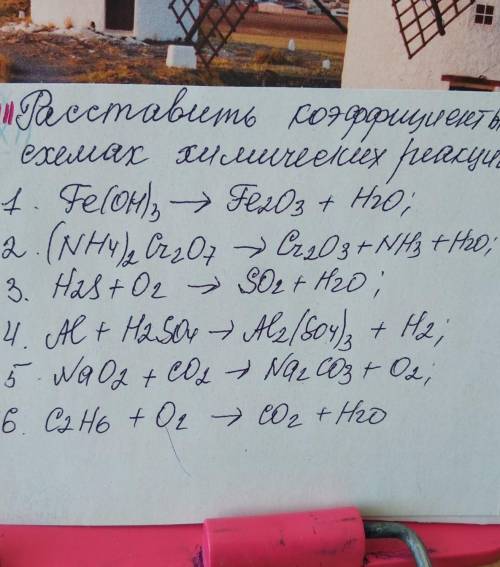 Расставить коэффициенты
схемах химических реакци
1. Fe(OH)3 → Fe2O3 + H2O;
2. (NH4)2Cr2O7 → Cr2O3 + NH3 + H2O;
3. H2S + O2 → SO2 + H2O;
4. Al + H2SO4 → Al2(SO4)3 + H2;
5. NaO2 + CO2 → Na2CO3 + O2;
6. C2H6 + O2 → CO2 + H2O